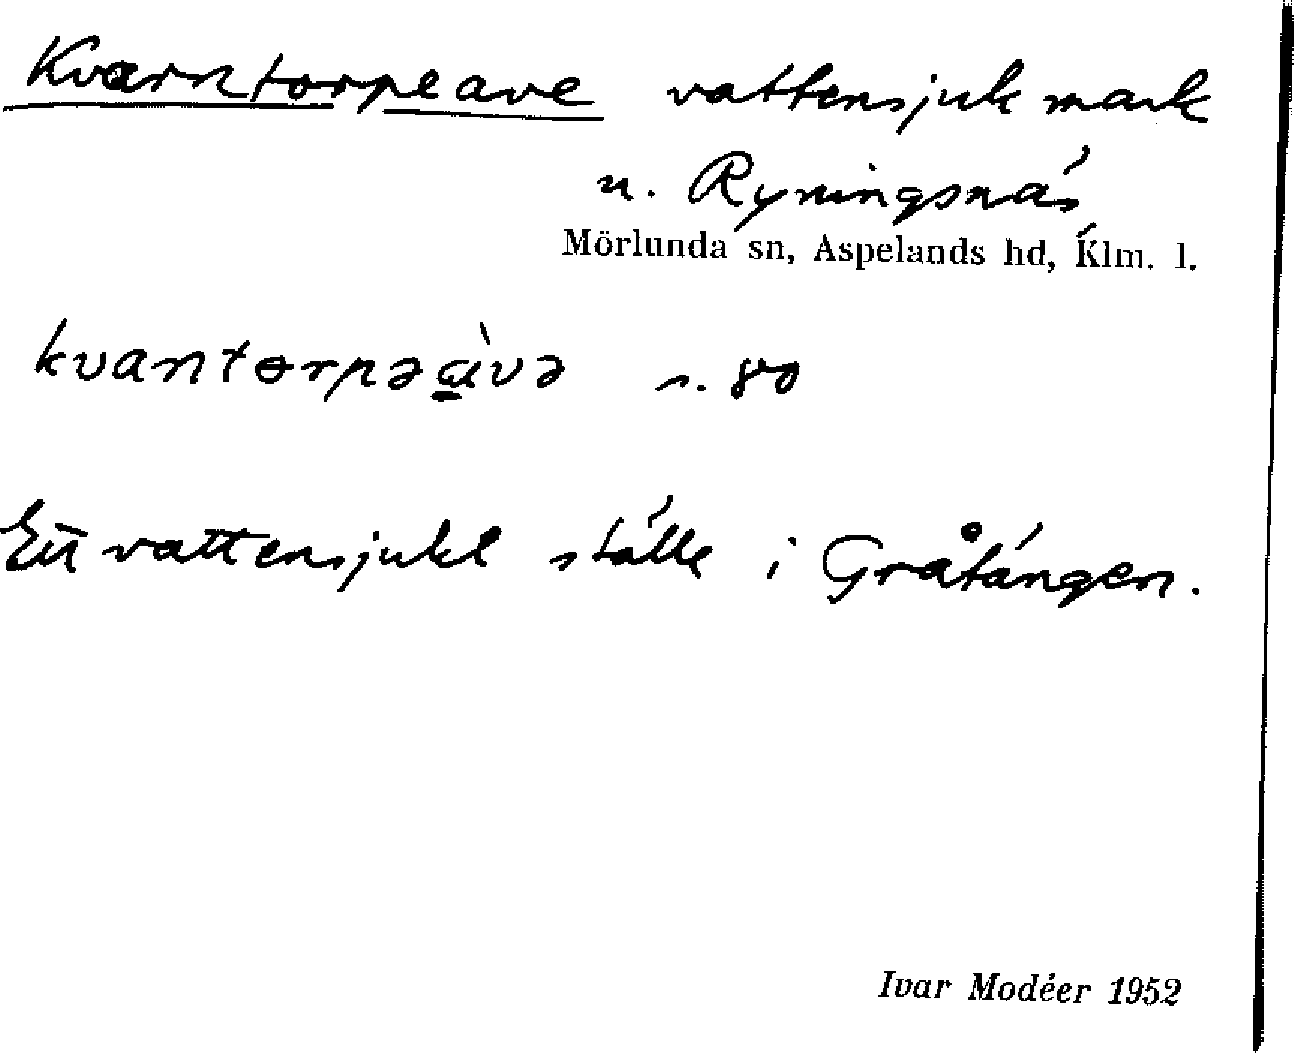 Kvarntorpeave vattensjuk mark
u. Ryningsnäs
Mörlunda sn, Aspelands hd, Klm. l.
kvantɵrpəɑ̀və s. 80
Ett vattensjukt ställe i Gråtängen.
Ivar Modéer 1952